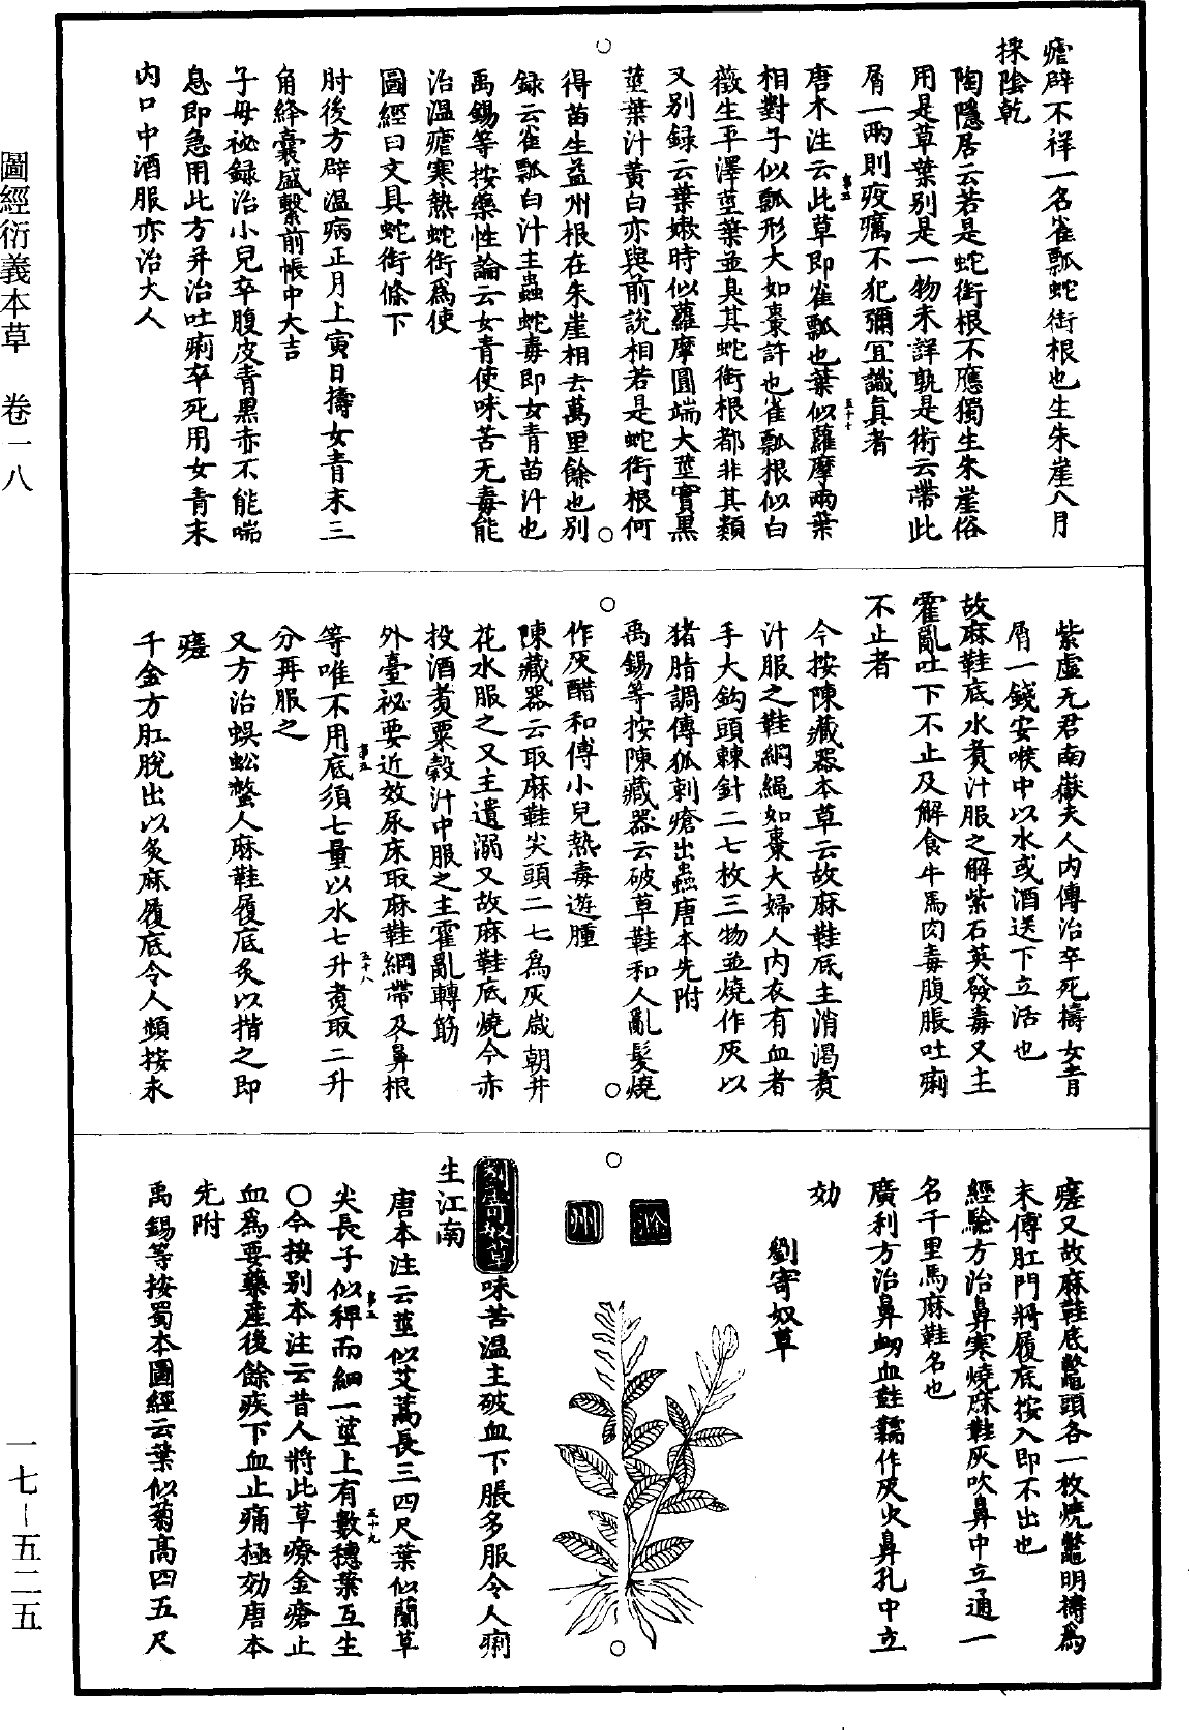 瘧辟不祥一名雀瓢蛇銜根也生朱崖八月
採陰乾
陶隱居云若是蛇銜根不應獨生朱崖俗
用是草葉别是一物未詳孰是術云帶此
屑一兩則疫癘不犯彌宜識真者
唐本注云此草即雀瓢也葉似蘿摩兩葉
相對子似瓢形大如棗許也雀瓢根似白
薇生平澤莖葉並臭其蛇銜根都非其類
又别録云葉嫩時似蘿摩圓端大莖實黑
莖葉汁黄白亦與前說相若是蛇銜根何
得苗生益州根在朱崖相去萬里餘也别
録云雀瓢白汁主蟲蛇毒即女青苗汁也
禹錫等按藥性論云女青使味苦无毒能
治温瘧寒熱蛇銜爲使
圖經曰文具蛇銜條下
肘後方辟温病正月上寅日擣女青末三
角絳囊盛繫前帳中大吉
子母祕録治小兒卒腹皮青黑赤不能喘
息即急用此方并治吐痢卒死用女青末
内口中酒服亦治大人
紫虚元君南嶽夫人内傳治卒死擣女青
屑一錢安喉中以水或酒送下立活也
故麻鞋底水煑汁服之解紫石英發毒又主
霍亂吐下不止及解食牛馬肉毒腹脹吐痢
不止者
今按陳藏器本草云故麻鞋底主消渴煑
汁服之鞋綱繩如棗大婦人内衣有血者
手大鈎頭棘針二七枚三物並燒作灰以
猪脂調傅狐刺瘡出蟲唐本先附
禹錫等按陳藏器云破草鞋和人亂髮燒
作灰醋和傅小兒熱毒遊腫
陳藏器云取麻鞋尖頭二七爲灰歲朝井
花水服之又主遺溺又故麻鞋底燒令赤
投酒煑粟穀汁中服之主霍亂轉筋
外臺祕要近效尿床取麻鞋綱帶及鼻根
等唯不用底須七量以水七升煑取二升
分再服之
又方治蜈蚣螫人麻鞋履底炙以揩之即
瘥
千金方肛脫出以炙麻履底令人頻按永
瘥又故麻鞋底鼈頭各一枚燒鼈明擣爲
末傅肛門將履底按入即不出也
經驗方治鼻寒燒麻鞋灰吹鼻中立通一
名千里馬麻鞋名也
廣利方治鼻衂血鞋䩺作灰火鼻孔中立
効
劉寄奴草
劉寄奴草味苦温主破血下脹多服令人痢
生江南
唐本注云莖似艾蒿長三四尺葉似蘭草
尖長子似稗而細一莖上有數穗葉互生
○今按别本注云昔人將此草療金瘡止
血爲要藥産後餘疾下血止痛極効唐本
先附
禹錫等按蜀本圖經云葉似菊髙四五尺
圖經衍義本草　卷一八
一七—五二五